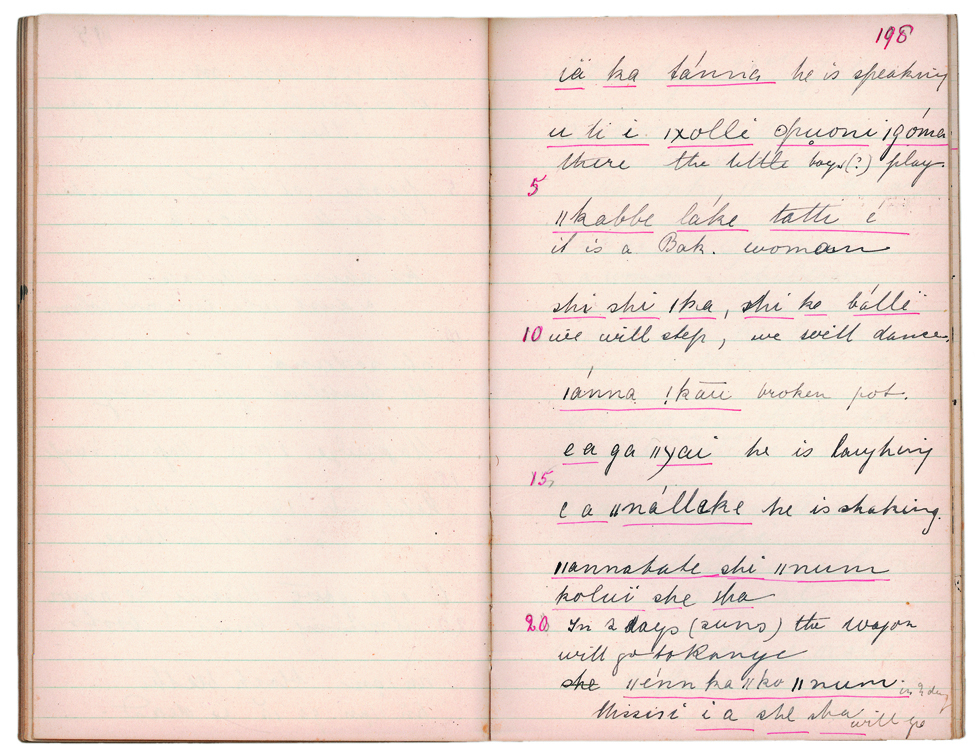 198
iä ka tánna he is speaking
u ti i ıxolli opuoni ıgóma
there the little boys (?) play.
5
ııkabbe láke tatti é
it is a Bak. woman
shi shi ıka, shi ke bálli
10 we will step, we will dance.
ıánna !kāu broken pot.
e a ga ııxai he is laughing
15
e a ıınállake he is shaking.
ııannabate shi ıınum
kolui she sha
20 In 2 days (suns) the wagon
will go to Kanye
she ııénn ka ııko ıınum. in 2 days
Missisi i a she sha will go